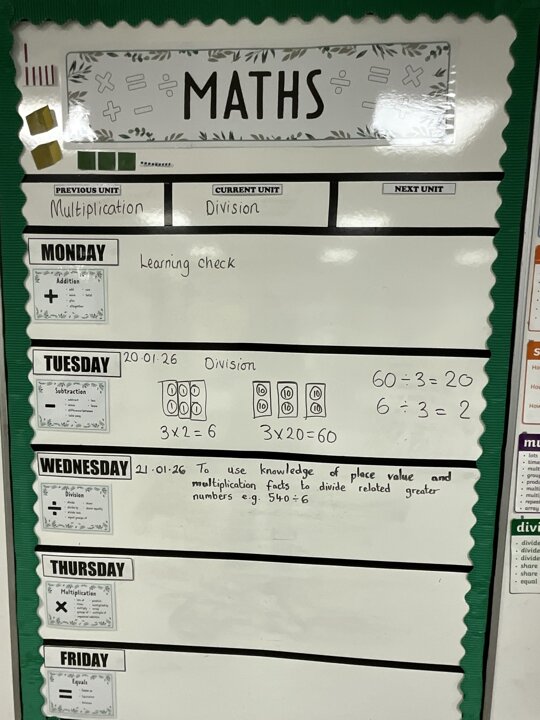 × = ÷ MATHS ÷ = ×
+ - + -
PREVIOUS UNIT CURRENT UNIT NEXT UNIT
Multiplication Division
MONDAY
Learning check
Addition
+
TUESDAY 20.01.26 Division
Subtraction
-
1 1 1 10 10 10
1 1 1 10 10 10
3×2=6 3×20=60
60÷3=20
6÷3=2
WEDNESDAY 21.01.26 To use knowledge of place value and
multiplication facts to divide related greater
numbers e.g. 540÷6
Division
÷
THURSDAY
Multiplication
×
FRIDAY
Equals
=